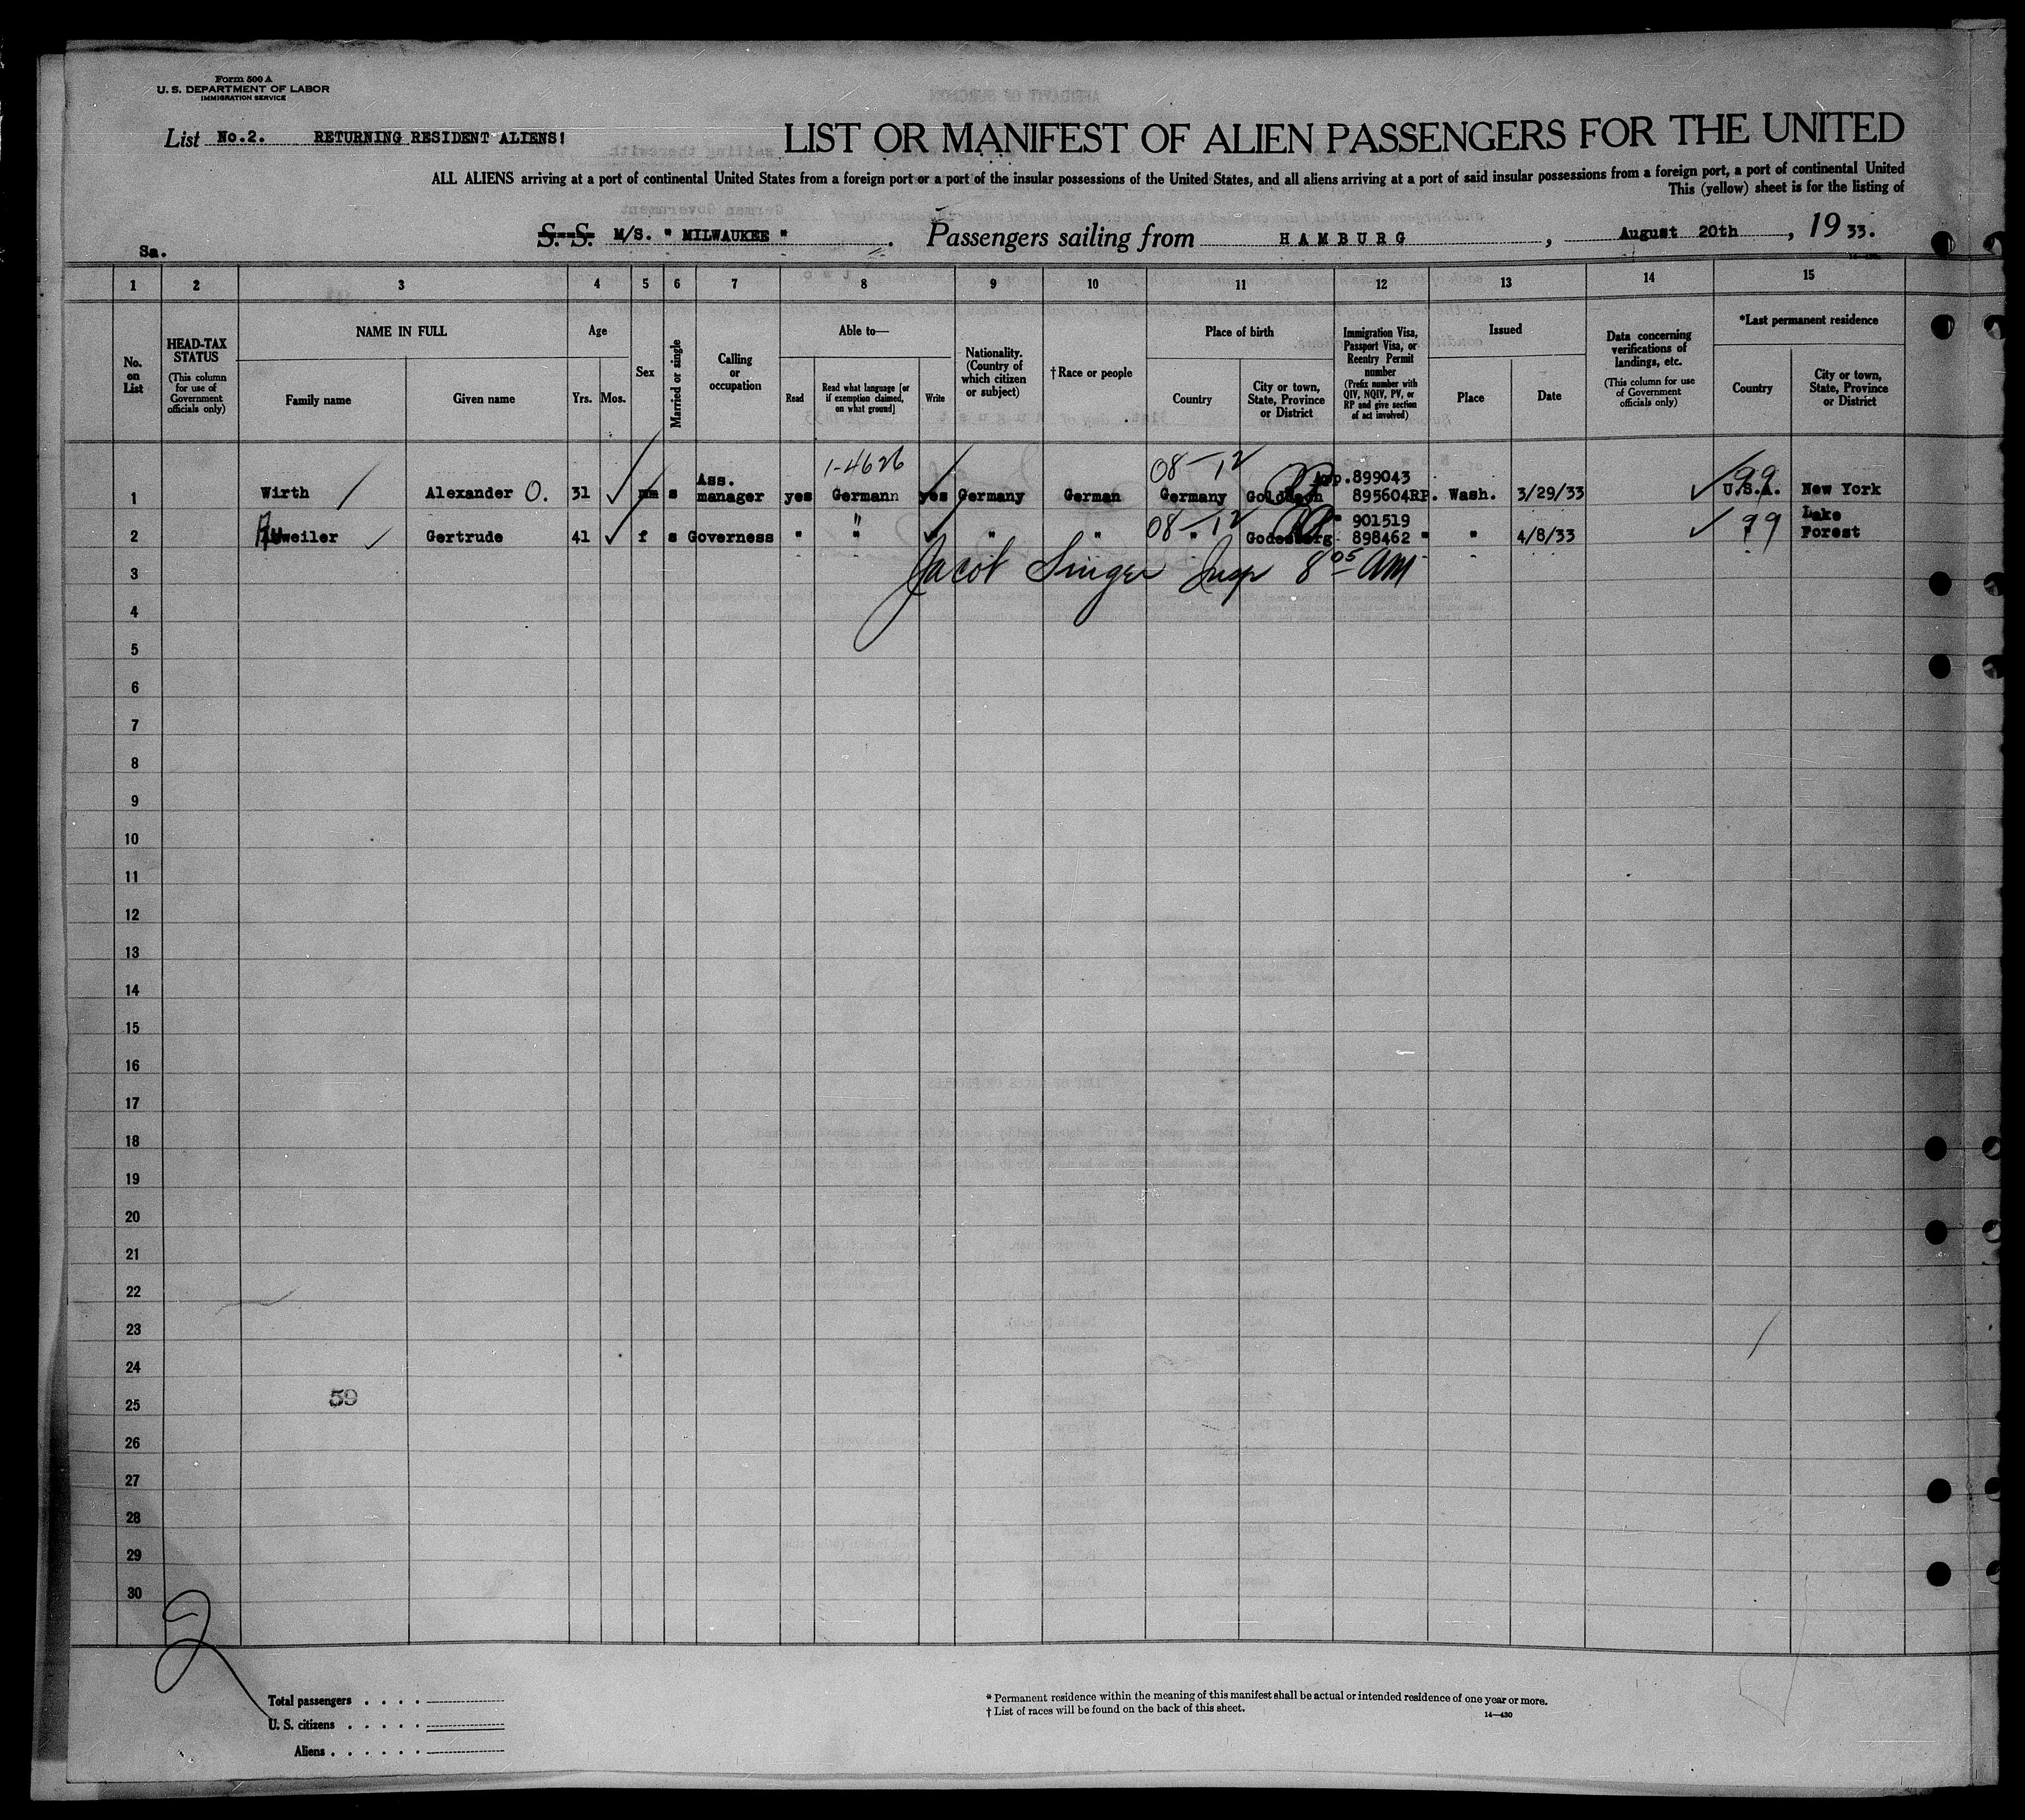 Form 500 A
U. S. DEPARTMENT OF LABOR
IMMIGRATION SERVICE
List No.2. RETURNING RESIDENT ALIENS!
LIST OR MANIFEST OF ALIEN PASSENGERS FOR THE UNITED
ALL ALIENS arriving at a port of continental United States from a foreign port or a port of the insular possessions of the United States, and all aliens arriving at a port of said insular possessions from a foreign port, a port of continental United
This (yellow) sheet is for the listing of
Sa.
S. S. M/S. " MILWAUKEE " . Passengers sailing from HAMBURG , August 20th , 19 33.
1 2 3 4 5 6 7 8 9 10 11 12 13 14 15
No. on List
HEAD-TAX STATUS
(This column for use of Government officials only)
NAME IN FULL
Family name
Given name
Age
Yrs. Mos.
Sex
Married or single
Calling or occupation
Able to—
Read
Read what language [or if exemption claimed, on what ground]
Write
Nationality. (Country of which citizen or subject)
†Race or people
Place of birth
Country
City or town, State, Province or District
Immigration Visa, Passport Visa, or Reentry Permit number
(Prefix number with QIV, NQIV, PV, or RP and give section of act involved)
Issued
Place
Date
Data concerning verifications of landings, etc.
(This column for use of Government officials only)
*Last permanent residence
Country
City or town, State, Province or District
1-4626 08-12 99
1 Wirth Alexander O. 31 s Ass. manager yes Germann yes Germany German Germany 899043 895604RP. Wash. 3/29/33 U.S.A. New York
08-12 99
2 weiler Gertrude 41 f s Governess " " " " " Godesberg " 901519 898462 " " 4/8/33 " Lake Forest
3 Jacob Singer Insp 8 05 AM
4
5
6
7
8
9
10
11
12
13
14
15
16
17
18
19
20
21
22
23
24
25 59
26
27
28
29
30
2
Total passengers . . . .
U. S. citizens . . . . .
Aliens . . . . . .
* Permanent residence within the meaning of this manifest shall be actual or intended residence of one year or more.
† List of races will be found on the back of this sheet.
14—430